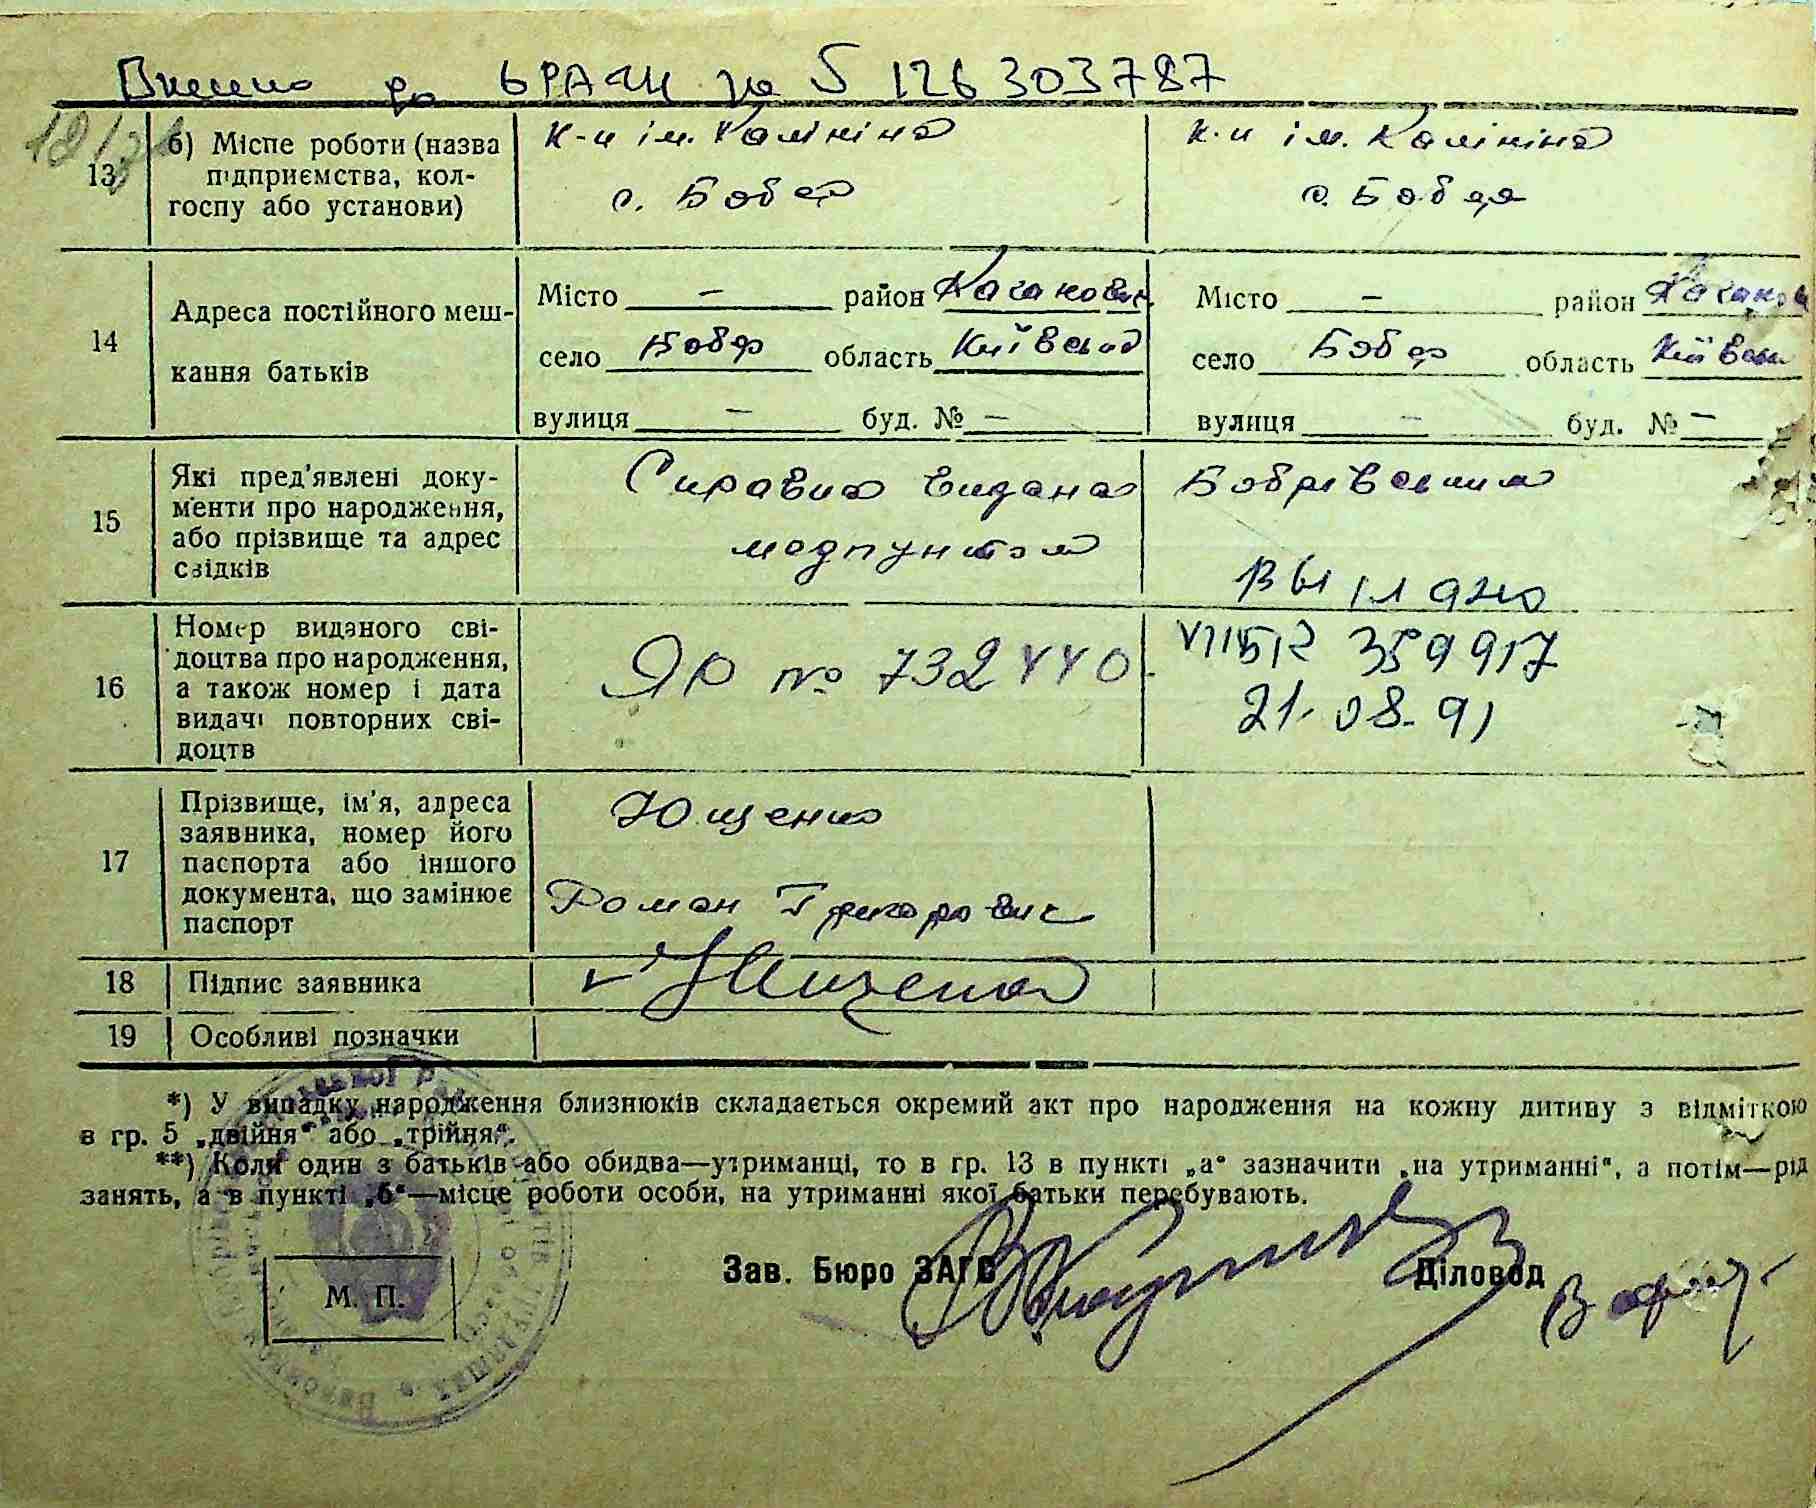 Внесено до ДРАЦС за № 126303787
13
б) Місце роботи (назва підприємства, колгоспу або установи)
к-п ім. Калініна
с. Бобер
к-п ім. Калініна
с. Бобер
14
Адреса постійного мешкання батьків
Місто — район Кагановič
село Бобер область Київська
вулиця — буд. № —
Місто — район
село Бобер область Київськ
вулиця — буд. № —
15
Які пред'явлені документи про народження, або прізвище та адрес свідків
Справка видана Бобрівським
медпунктом
16
Номер виданого свідоцтва про народження, а також номер і дата видачі повторних свідоцтв
ЯЮ № 732440
359917
21.08.91
17
Прізвище, ім'я, адреса заявника, номер його паспорта або іншого документа, що замінює паспорт
Ющенко
Роман Григорович
18
Підпис заявника
Ющенко
19
Особливі позначки
*) У випадку народження близнюків складається окремий акт про народження на кожну дитину з відміткою
в гр. 5 „двійня" або „трійня".
**) Коли один з батьків або обидва—утриманці, то в гр. 13 в пункті „а" зазначити „на утриманні", а потім—рід
занять, а в пункті „б"—місце роботи особи, на утриманні якої батьки перебувають.
Зав. Бюро ЗАГС
Діловод
М. П.